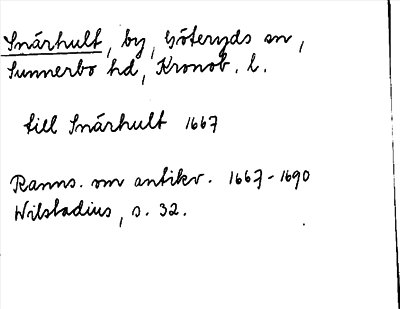 Snärhult, by, Göteryds sn,
Sunnerbo hd, Kronob. l.
till Snärhult 1667
Ranns. om antikv. 1667-1690
Wilstadius, s. 32.